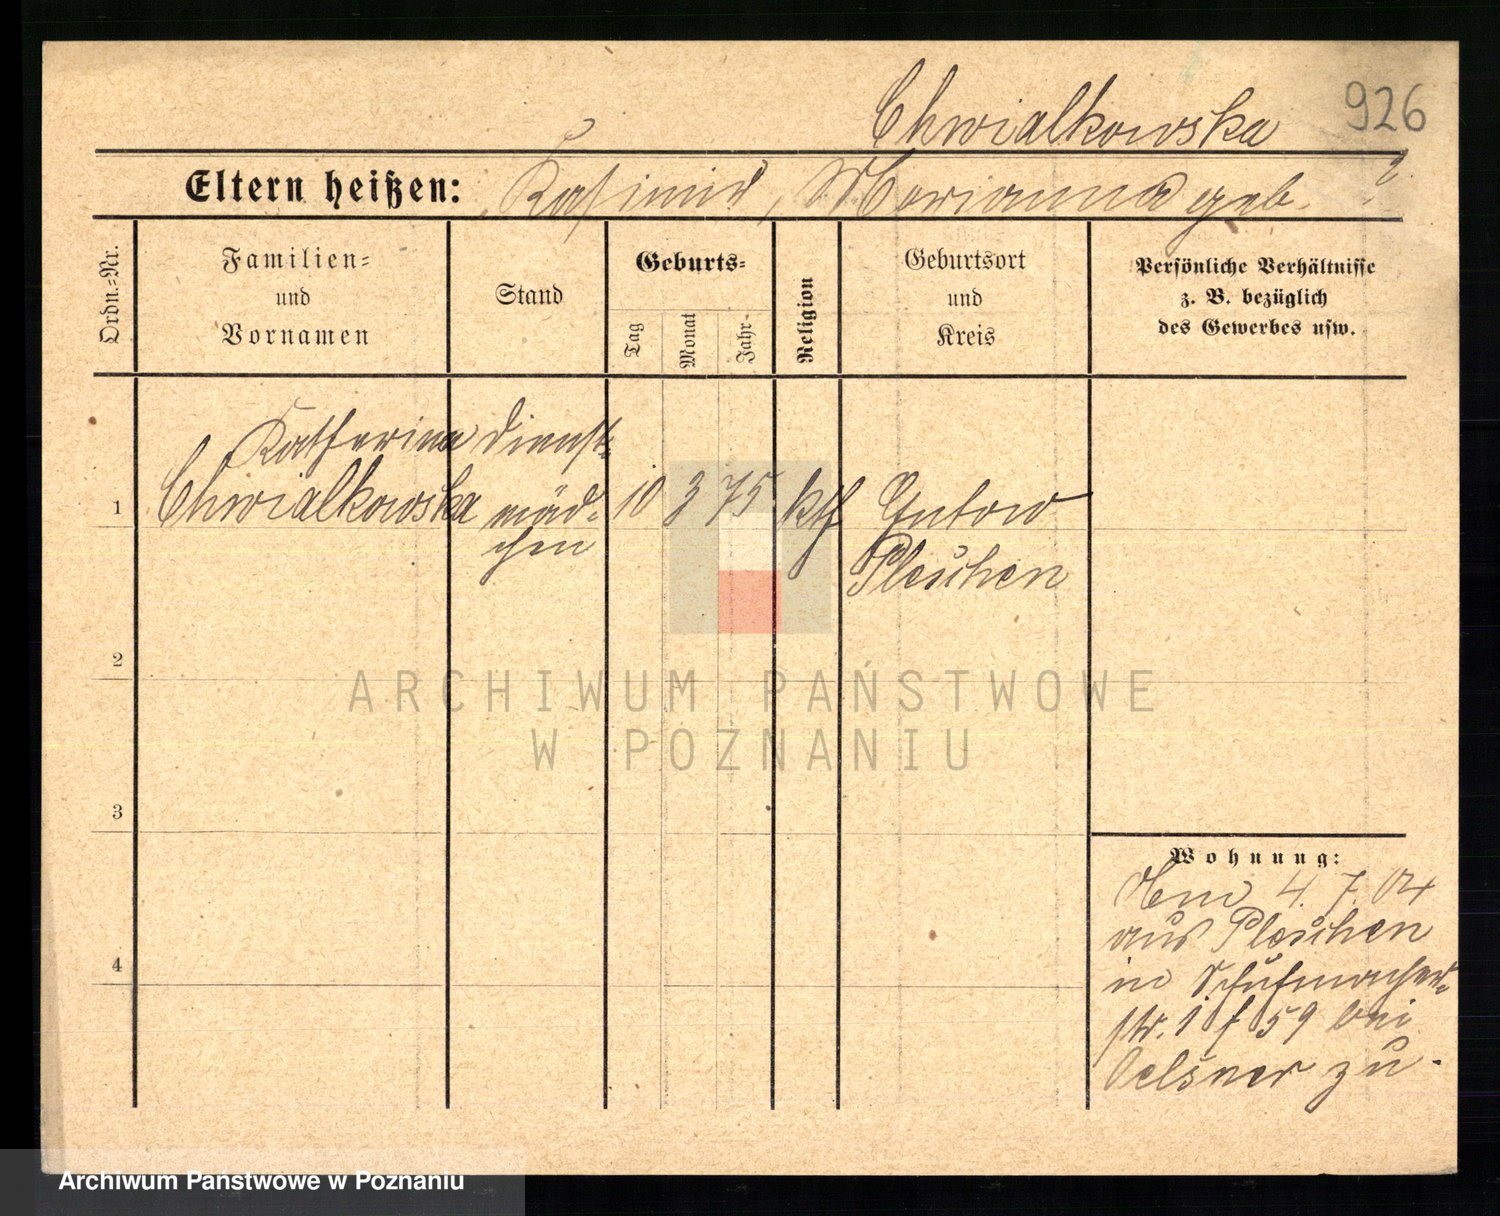 Chwialkowska 926
Eltern heißen: Kasimir, Marianna geb. ?
Ordn.-Nr.
Familien-
und
Vornamen
Stand
Geburts-
Tag
Monat
Jahr
Religion
Geburtsort
und
Kreis
Persönliche Verhältnisse
z. B. bezüglich
des Gewerbes usw.
Katharina Dienst-
1 Chwialkowska mäd- 10 3 75 kth
chen
Pleschen
2
3
4
Wohnung:
4. 7. 04
aus Pleschen
in Schuhmacher-
str. 1 f 59 bei
Oelsner zu.
ARCHIWUM PAŃSTWOWE
W POZNANIU
Archiwum Państwowe w Poznaniu